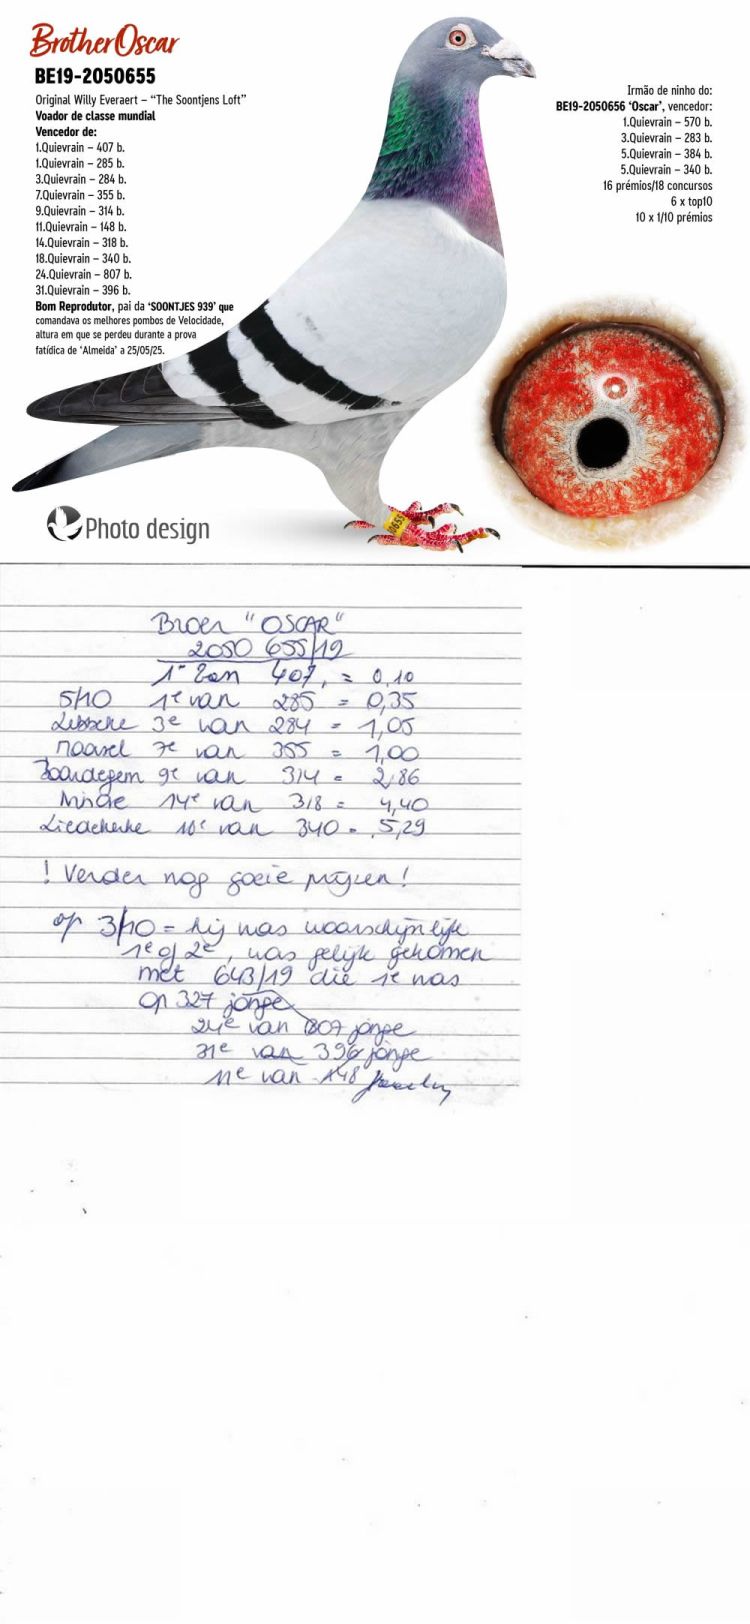 BrotherOscar
BE19-2050655
Original Willy Everaert – “The Soontjens Loft”
Voador de classe mundial
Vencedor de:
1.Quievrain – 407 b.
1.Quievrain – 285 b.
3.Quievrain – 284 b.
7.Quievrain – 355 b.
9.Quievrain – 314 b.
11.Quievrain – 148 b.
14.Quievrain – 318 b.
18.Quievrain – 340 b.
24.Quievrain – 807 b.
31.Quievrain – 396 b.
Bom Reprodutor, pai da ‘SOONTJES 939’ que
comandava os melhores pombos de Velocidade,
altura em que se perdeu durante a prova
fatídica de ‘Almeida’ a 25/05/25.
Irmão de ninho do:
BE19-2050656 ‘Oscar’, vencedor:
1.Quievrain – 570 b.
3.Quievrain – 283 b.
5.Quievrain – 384 b.
5.Quievrain – 340 b.
16 prémios/18 concursos
6 x top10
10 x 1/10 prémios
0655
Photo design
Broer "OSCAR"
2050 655/19
1e van 407, = 0,10
5/10 1e van 285 = 0,35
Lebbeke 3e van 284 = 1,05
7e van 355 = 1,00
9e van 314 = 2,86
Ninove 14e van 318 = 4,40
Liedekerke 18e van 340 = 5,29
! Verder nog goeie prijzen!
op 3/10 = hij was waarschijnlijk
1e of 2e, was gelijk gekomen
met 643/19 die 1e was
op 327 jonge
24e van 807 jonge
31e van 396 jonge
11e van 148